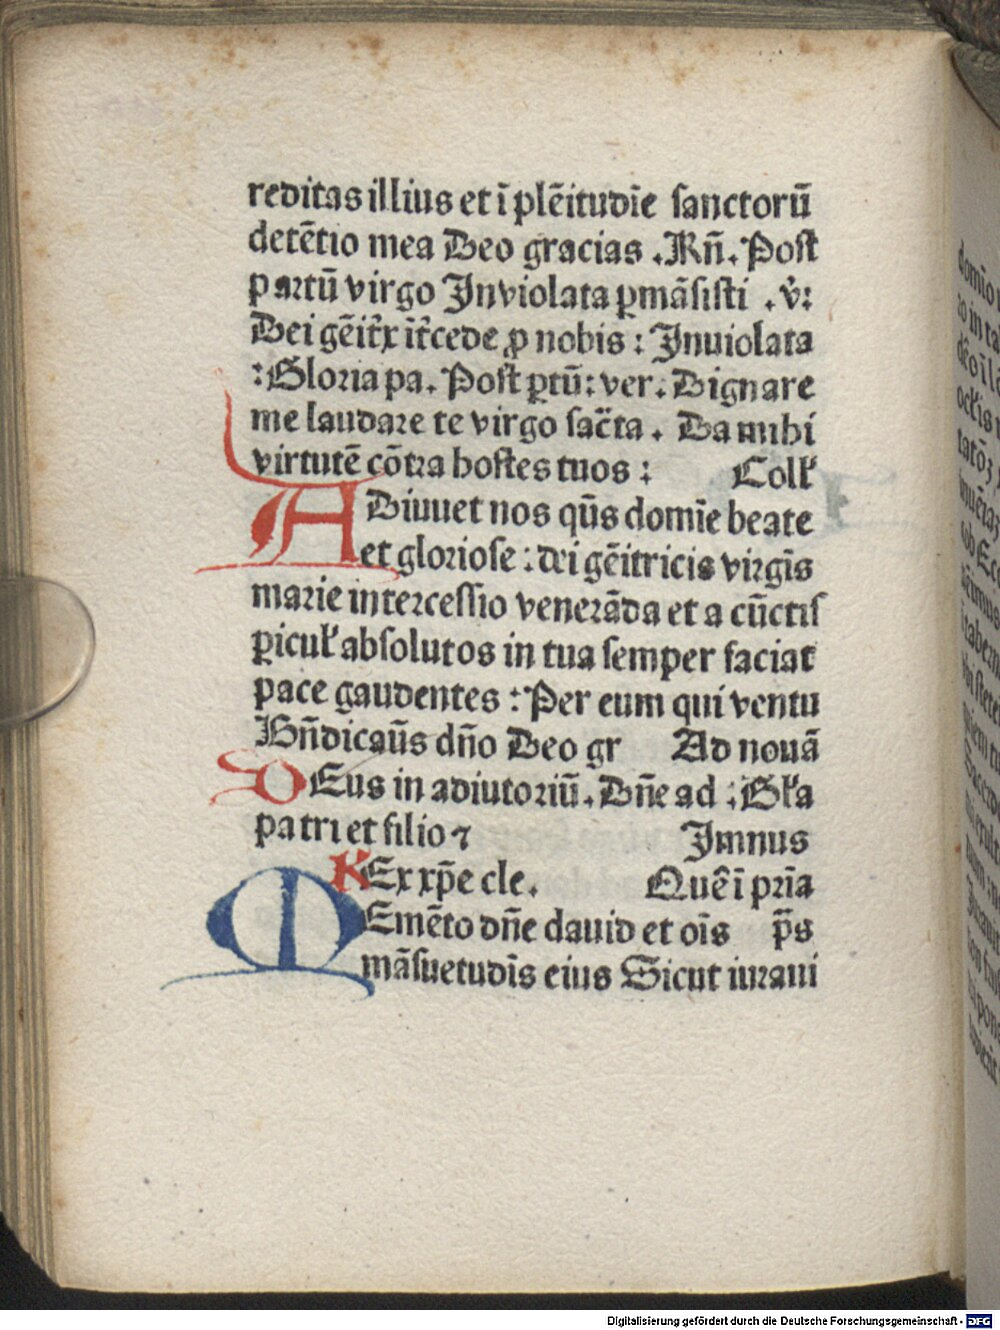 reditas illius et ī plēitudīe sanctorū
detētio mea Deo gracias .Rn̄. Post
partū virgo Inviolata ꝑmāsisti . v̄:
Dei gēitr̄x īt̄cede ꝓ nobis : Inuiolata
: Gloria pa. Post ꝑtū: ver. Dignare
me laudare te virgo sac̄ta . Da mihi
virtutē cōtra hostes tuos : Colł
ADiuuet nos qūs domīe beate
et gloriose : dei gēitricis virgīs
marie intercessio venerāda et a cūctis
ꝑicuł absolutos in tua semper faciat
pace gaudentes : Per eum qui ventu
Bn̄dicaūs dn̄o Deo gr Ad nouā
DEus in adiutoriū. Dn̄e ad : Gła
patri et filio ⁊ Imnus
REx xp̄e cle. Quē ī pr̄ia
MEmēto dn̄e dauid et oīs p̄s
māsuetudīs eius Sicut iuraui
domīo
Digitalisierung gefördert durch die Deutsche Forschungsgemeinschaft - DFG